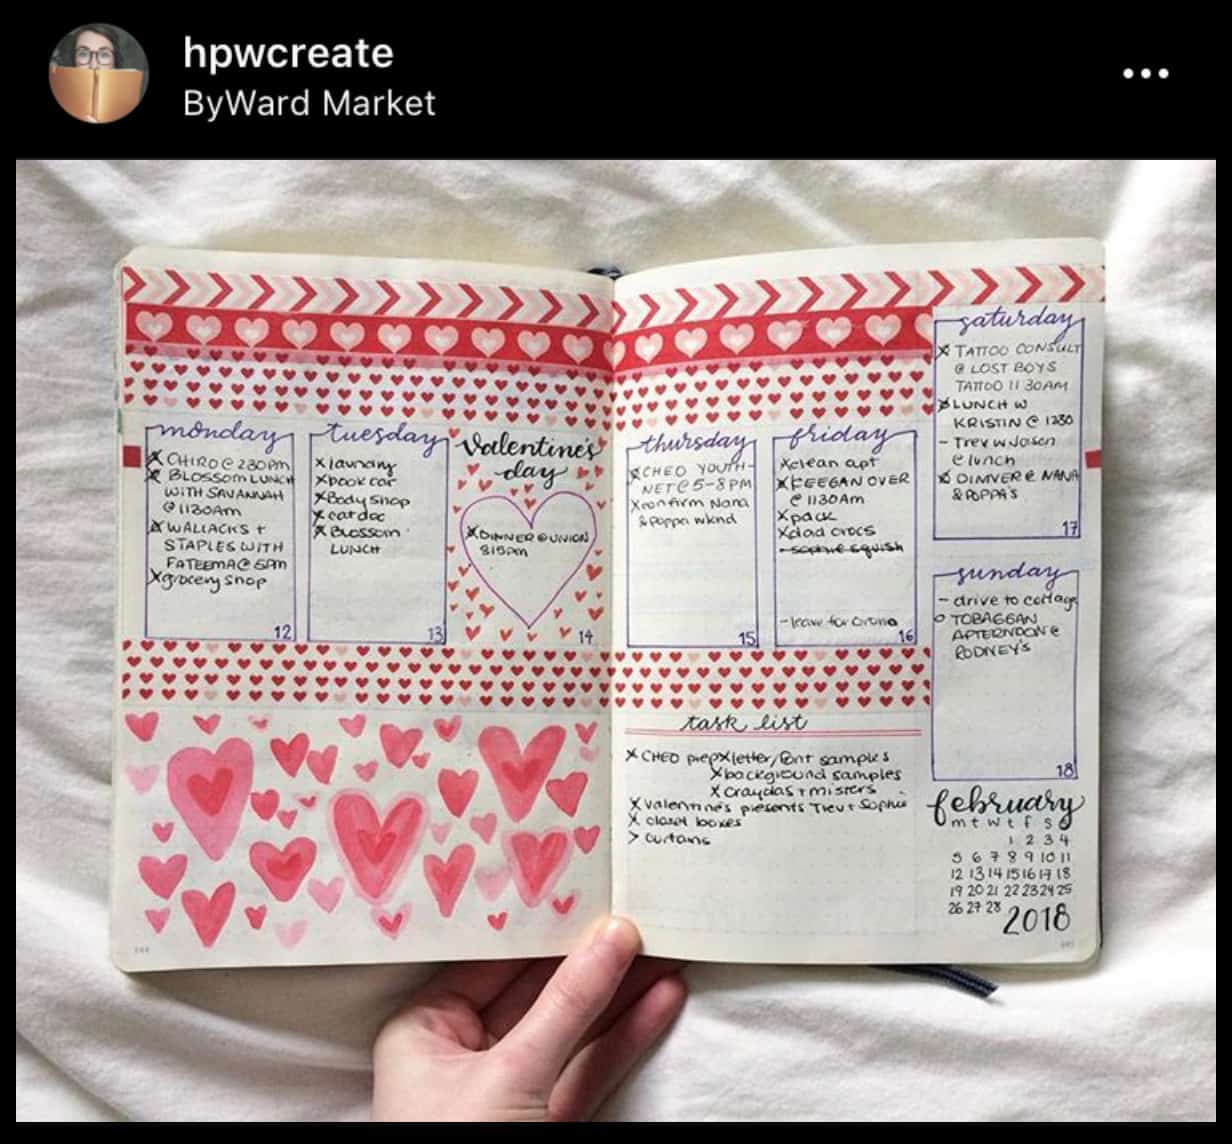 hpwcreate
ByWard Market
monday
X CHIRO @ 230PM
X BLOSSOM LUNCH
WITH SAVANNAH
@ 1130AM
X WALLACKS +
STAPLES WITH
FATEEMA @ 5PM
X grocery shop
12
tuesday
X laundry
X book car
X Body Shop
X eat doc
X BLOSSOM
LUNCH
13
Valentine's
day
X DINNER @ UNION
815pm
14
thursday
X CHEO YOUTH-
NET @ 5-8 PM
X confirm Nana
& Poppa wknd
15
friday
X clean apt
X KEEGAN OVER
@ 1130Am
X pack
X dad crocs
- sophie squish
- leave for Orono
16
saturday
X TATTOO CONSULT
@ LOST BOYS
TATTOO 11 30AM
X LUNCH W
KRISTIN @ 1230
- Trev w Jason
@ lunch
X DINNER @ NANA
& POPPA'S
17
sunday
- drive to cottage
o TOBAGGAN
AFTERNOON @
RODNEY'S
18
task list
X CHEO prep X letter/font samples
X background samples
X crayolas + misters
X Valentine's presents Trev + Sophie
X closet boxes
> curtains
february
m t w t f s s
1 2 3 4
5 6 7 8 9 10 11
12 13 14 15 16 17 18
19 20 21 22 23 24 25
26 27 28
2018